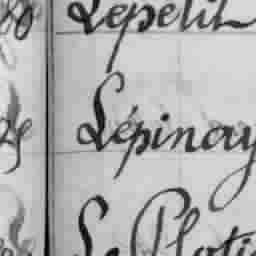 Lepetit
Lépinay
Le Plati